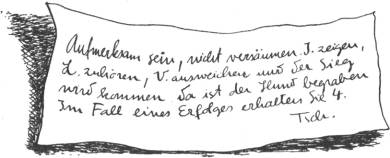 Aufmerksam sein, nicht versäumen. J. zeigen,
L. zuhören, V. ausweichen und der Sieg
wird kommen Da ist der Hund begraben
Im Fall eines Erfolges erhalten Sie 4.